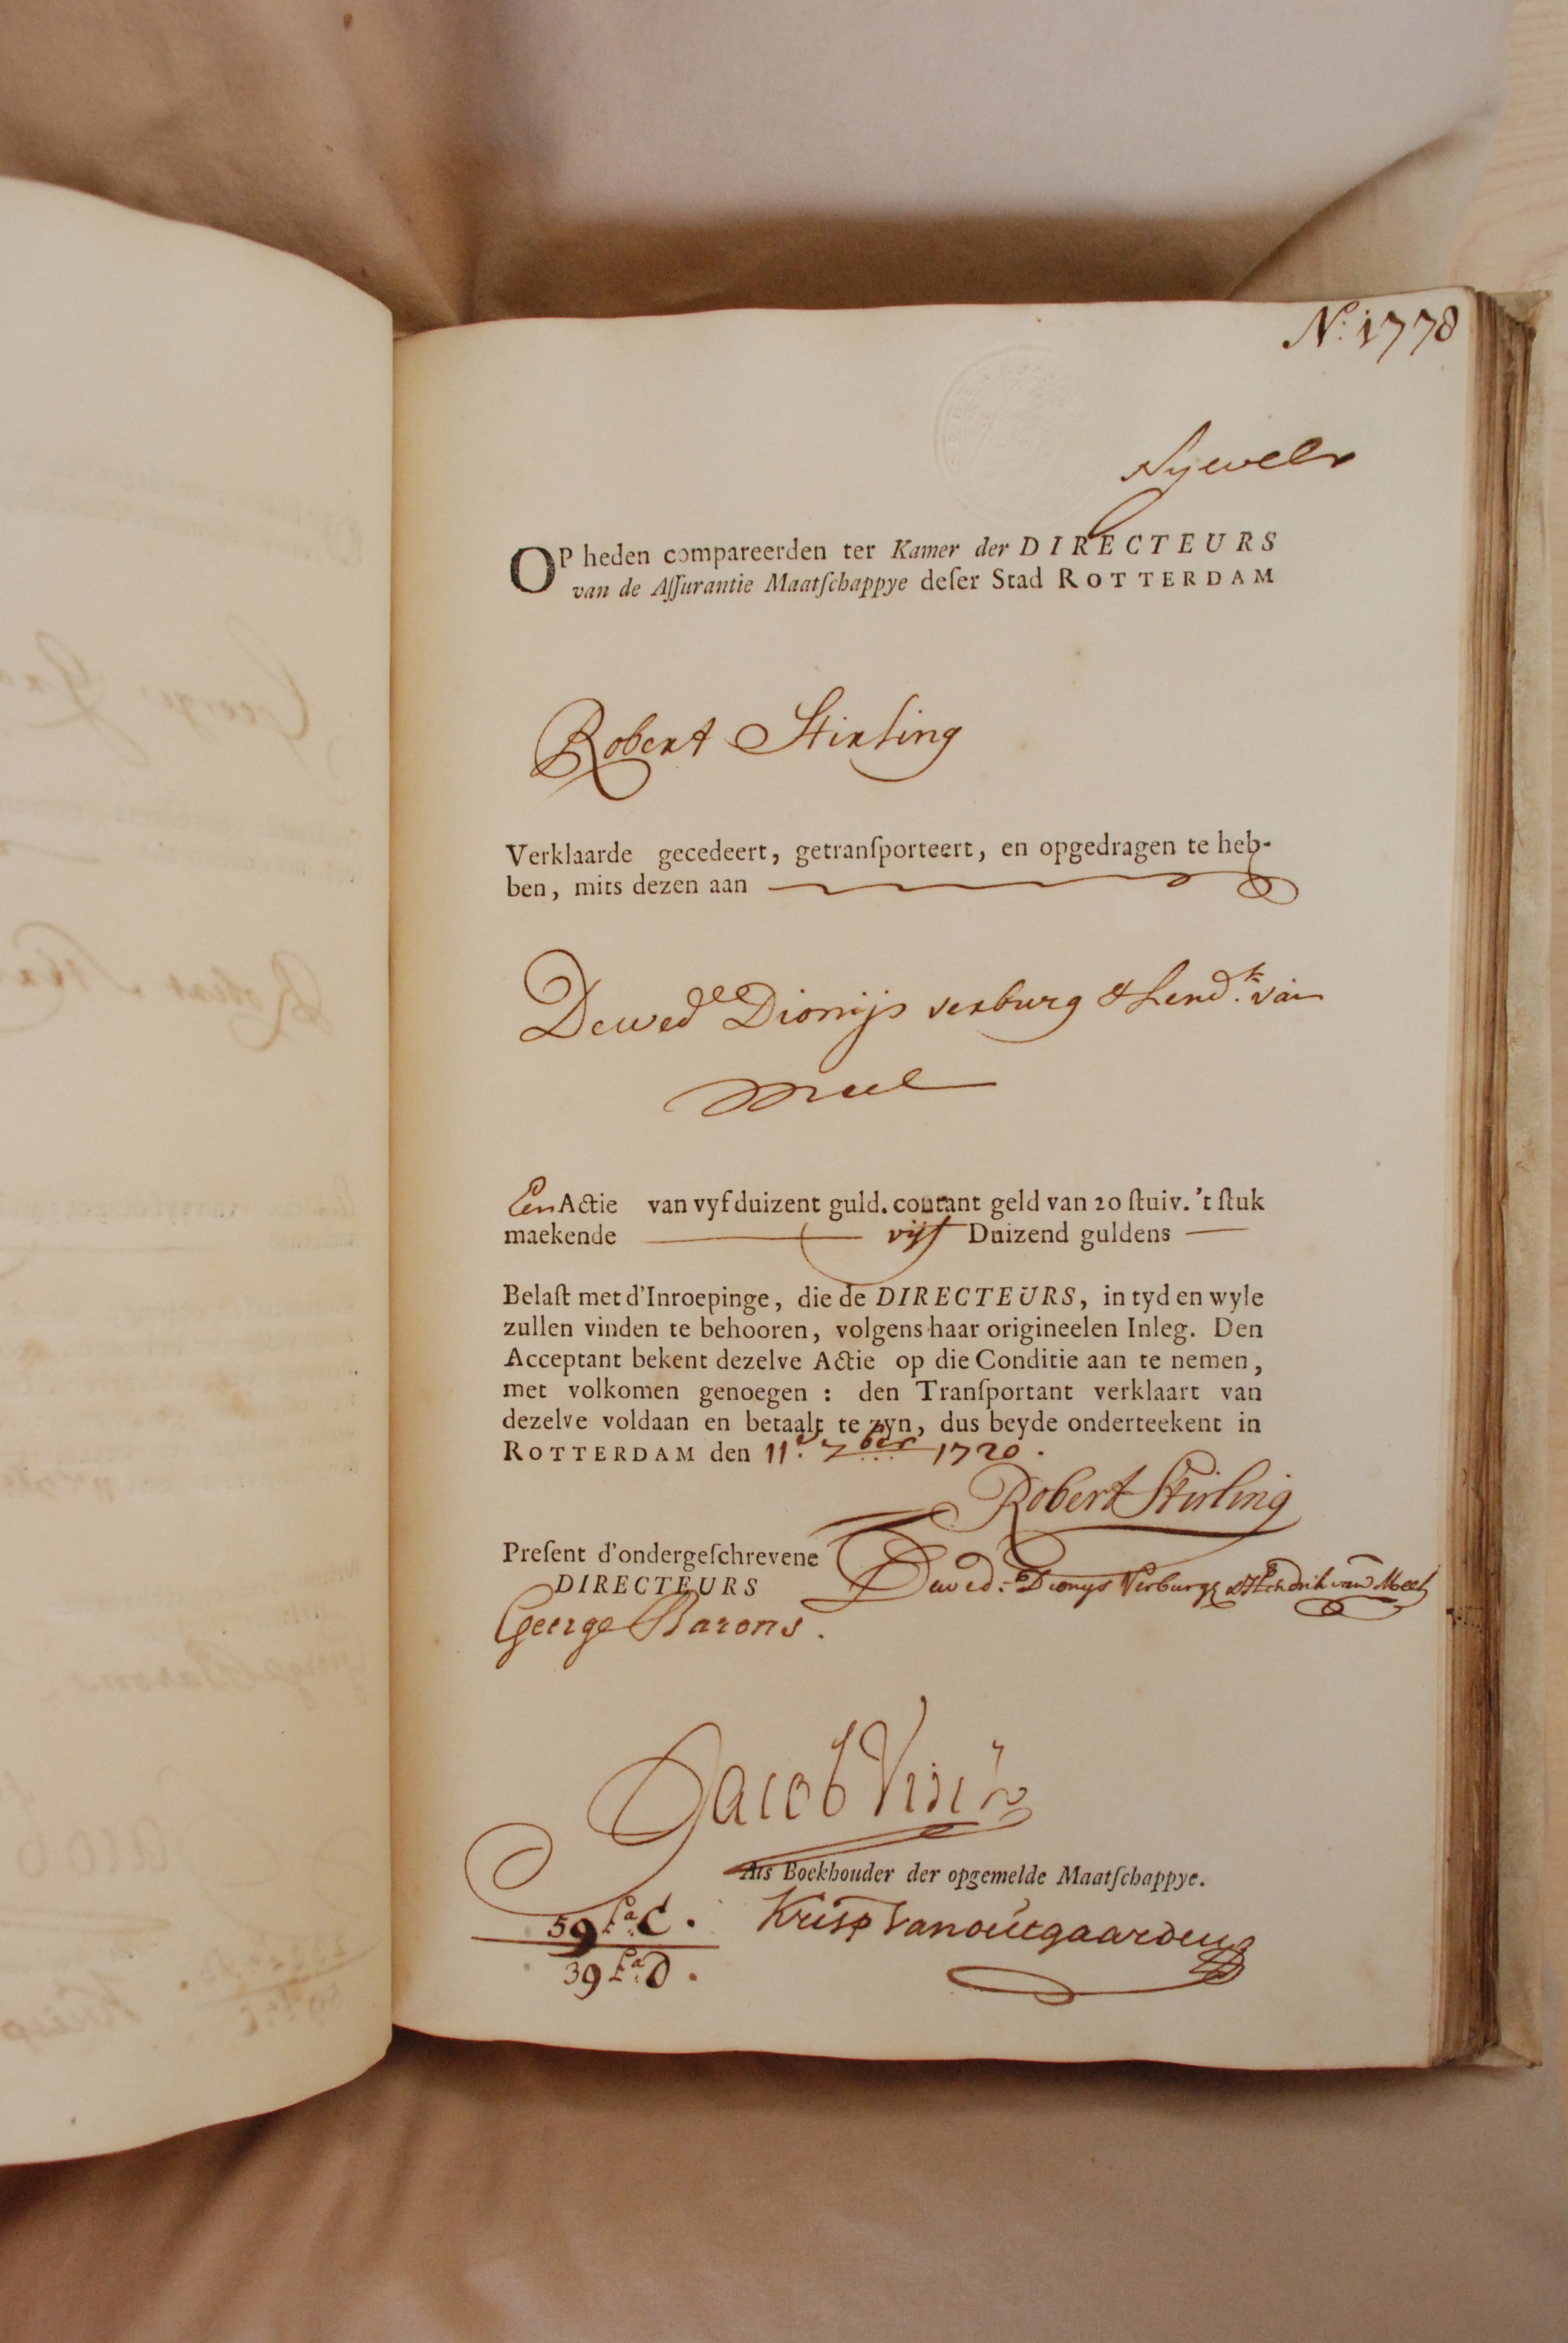 No. 1778
Nyevelt
OP heden compareerden ter Kamer der DIRECTEURS
van de Aſſurantie Maatſchappye deſer Stad ROTTERDAM
Robert Stirling
Verklaarde gecedeert, getranſporteert, en opgedragen te heb-
ben, mits dezen aan
De wed.e Dionijs verburg & Hend.k van
meel
Een Actie van vyf duizent guld. courant geld van 20 ſtuiv. 't ſtuk
maekende vijf Duizend guldens
Belaſt met d'Inroepinge, die de DIRECTEURS, in tyd en wyle
zullen vinden te behooren, volgens haar origineelen Inleg. Den
Acceptant bekent dezelve Actie op die Conditie aan te nemen,
met volkomen genoegen : den Tranſportant verklaart van
dezelve voldaan en betaalt te zyn, dus beyde onderteekent in
ROTTERDAM den 11e. 7ber 1720.
Robert Stirling
Preſent d'ondergeſchrevene
De wed: Dionys Verburg & Hendrik van Meel
DIRECTEURS
George Barons.
Jacob
Als Boekhouder der opgemelde Maatſchappye.
Krisp Vanoutgaarden
59 fa. C.
39 fa. D.